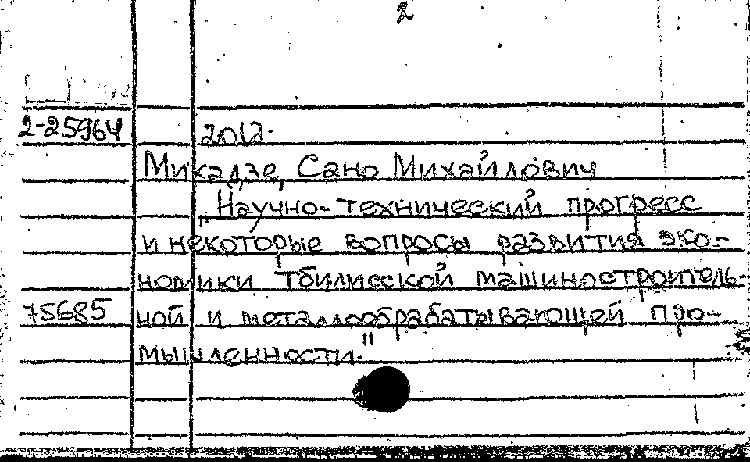 2
2-25964 2012.
Микадзе, Сано Михайлович
„Научно-технический прогресс
и некоторые вопросы развития эко-
номики Тбилисской машиностроитель-
75685 ной и металлообрабатывающей про-
мышленности."